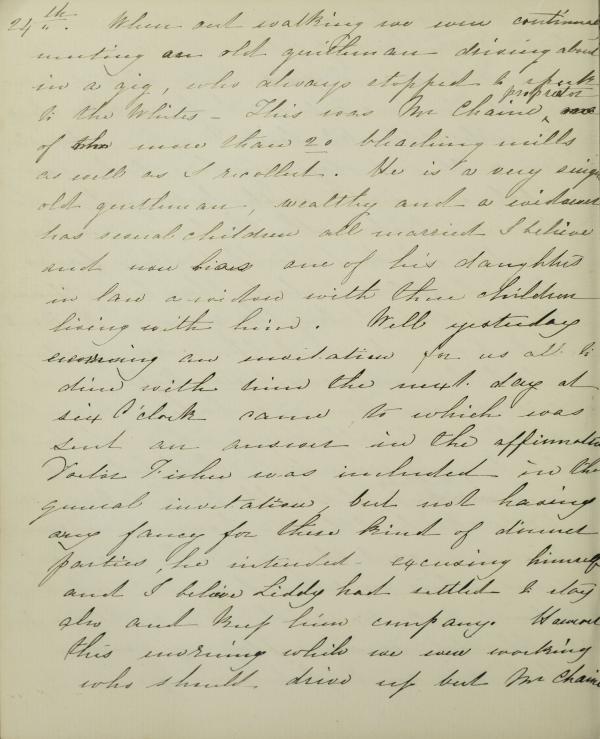 24th. When out walking we were continual
meeting an old gentleman driving about
in a gig, who always stopped to speak
to the Whites - This was Mr Chaine, proprietor
of more than 20 bleaching mills
as well as I recollect. He is a very
old gentleman, wealthy and a widower
has several children all married I believe
and now has one of his daughters
in law a widow with three children
living with him. Well yesterday
evening an invitation for us all to
dine with him the next day at
six O'clock came to which was
sent an answer in the affirmative
Doctor Fisher was included in the
general invitation, but not having
any fancy for these kind of dinner
parties, he intended excusing himself
and I believe Liddy had settled to stay
also and keep him company. However
this morning while we were working
who should drive up but Mr Chaine